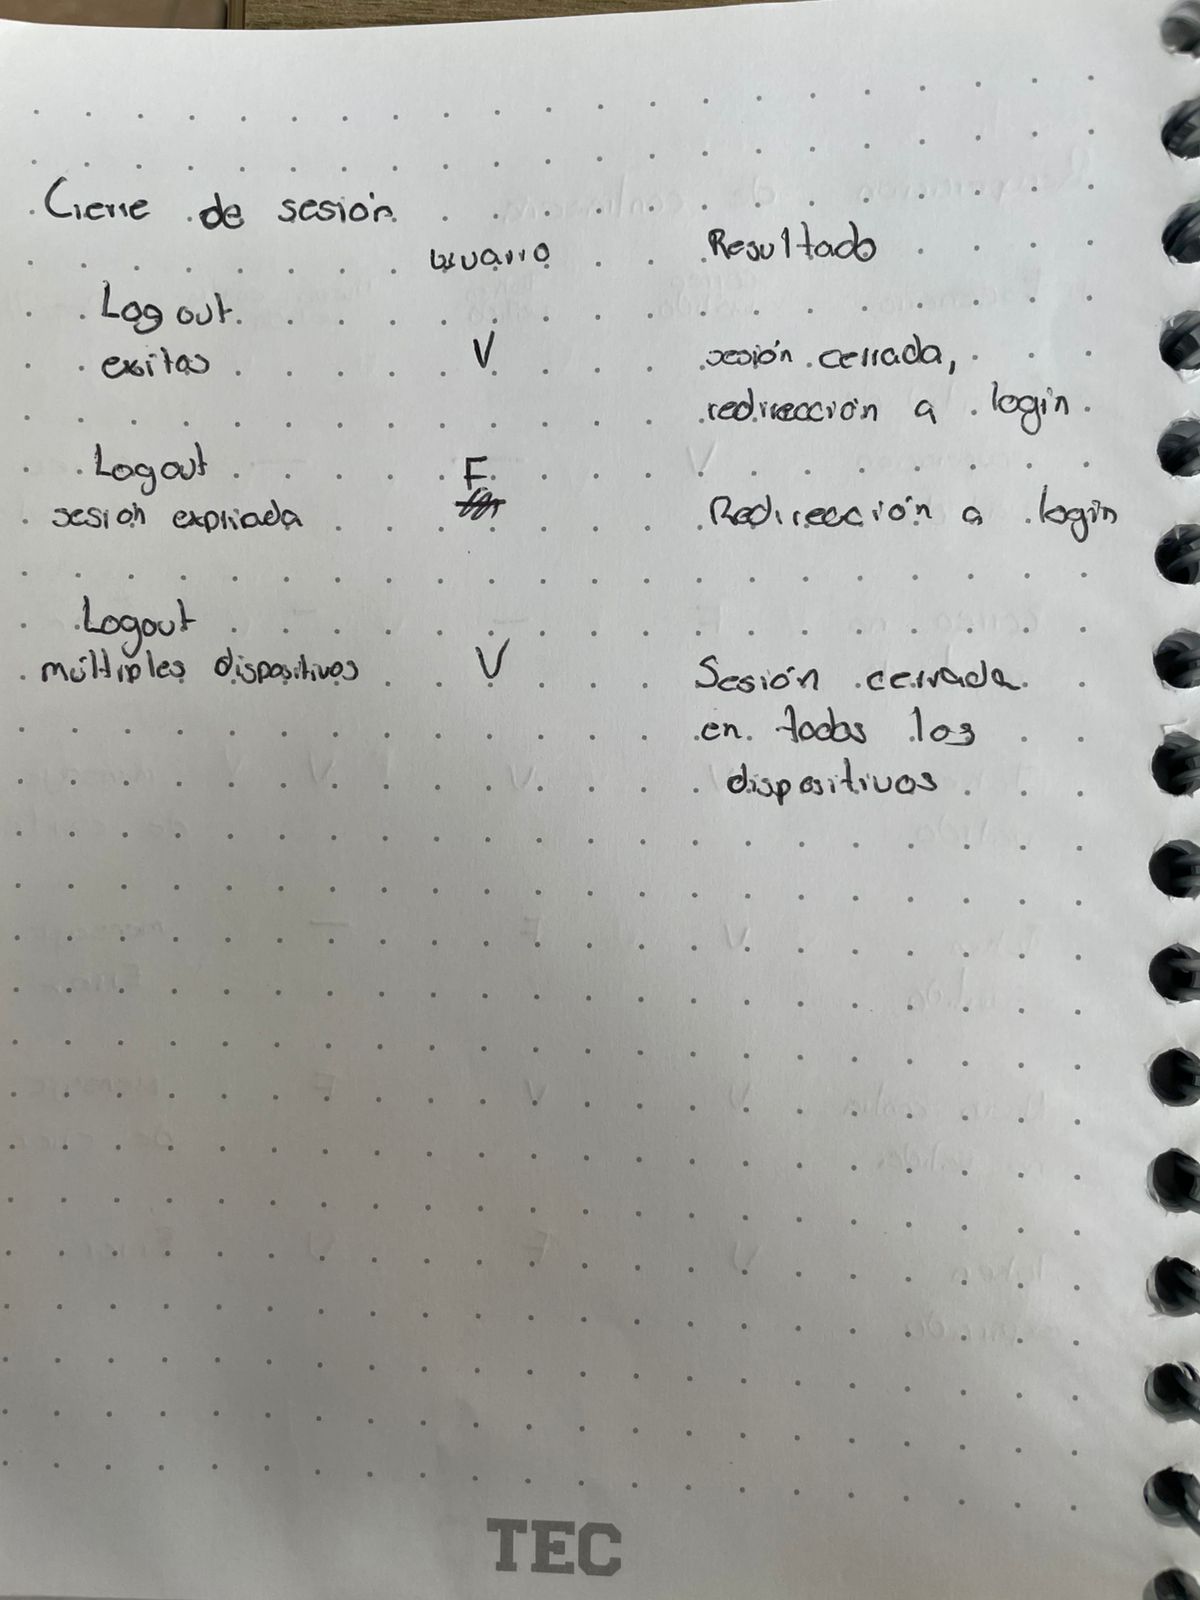 Cierre de sesión
usuario Resultado
Log out
exitos V sesión cerrada,
redirección a login
Logout F
sesión expirada Redirección a login
Logout
múltiples dispositivos V Sesión cerrada
en todos los
dispositivos
TEC